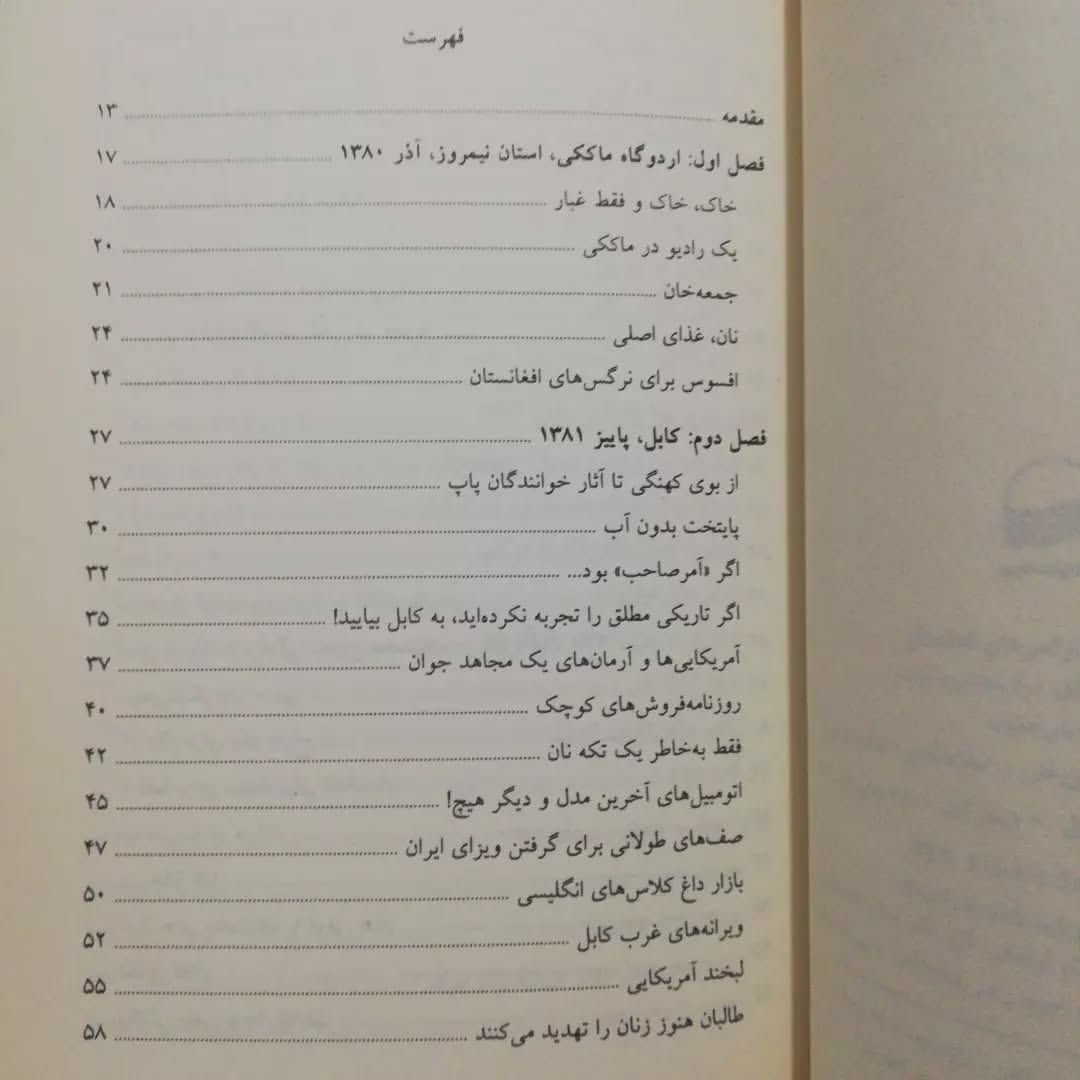 فهرست
مقدمه ........ ۱۳
فصل اول: اردوگاه ماککی، استان نیمروز، آذر ۱۳۸۰ ........ ۱۷
خاک، خاک و فقط غبار ........ ۱۸
یک رادیو در ماککی ........ ۲۰
جمعه‌خان ........ ۲۱
نان، غذای اصلی ........ ۲۴
افسوس برای نرگس‌های افغانستان ........ ۲۴
فصل دوم: کابل، پاییز ۱۳۸۱ ........ ۲۷
از بوی کهنگی تا آثار خوانندگان پاپ ........ ۲۷
پایتخت بدون آب ........ ۳۰
اگر «آمرصاحب» بود... ........ ۳۲
اگر تاریکی مطلق را تجربه نکرده‌اید، به کابل بیایید! ........ ۳۵
آمریکایی‌ها و آرمان‌های یک مجاهد جوان ........ ۳۷
روزنامه‌فروش‌های کوچک ........ ۴۰
فقط به‌خاطر یک تکه نان ........ ۴۲
اتومبیل‌های آخرین مدل و دیگر هیچ! ........ ۴۵
صف‌های طولانی برای گرفتن ویزای ایران ........ ۴۷
بازار داغ کلاس‌های انگلیسی ........ ۵۰
ویرانه‌های غرب کابل ........ ۵۲
لبخند آمریکایی ........ ۵۵
طالبان هنوز زنان را تهدید می‌کنند ........ ۵۸